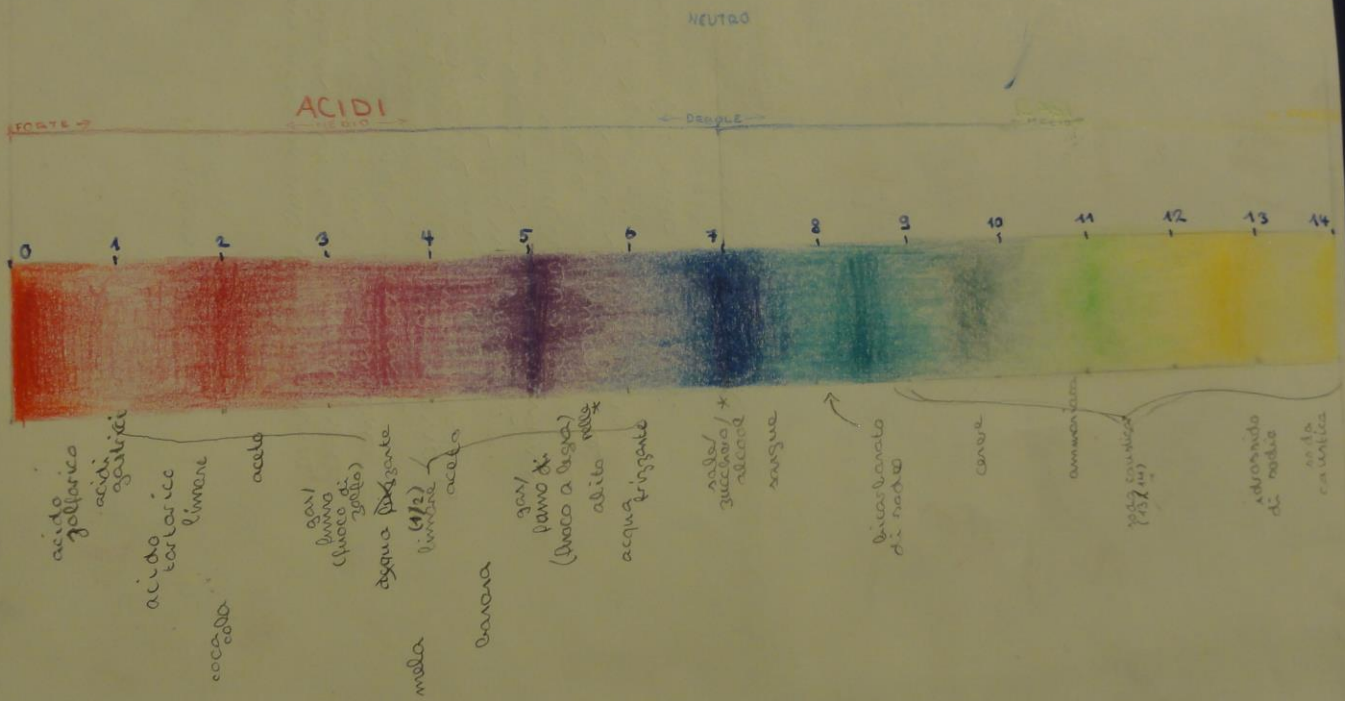 NEUTRO
ACIDI
FORTE →
← MEDIO →
← DEBOLE →
0 1 2 3 4 5 6 7 8 9 10 11 12 13 14
acido
solforico
acidi
gastrici
acido
tartarico
limone
coca
cola
aceto
gas/
fumo
(fuoco di
zolfo)
acqua
mela
(1/2)
limone
aceto
banana
gas/
fumo di
(fuoco a legna)
alito
pelle*
acqua
frizzante
sale/
zucchero/*
alcool
sangue
bicarbonato
di sodio
cenere
ammoniaca
(13/14)
idrossido
di sodio
soda
caustica